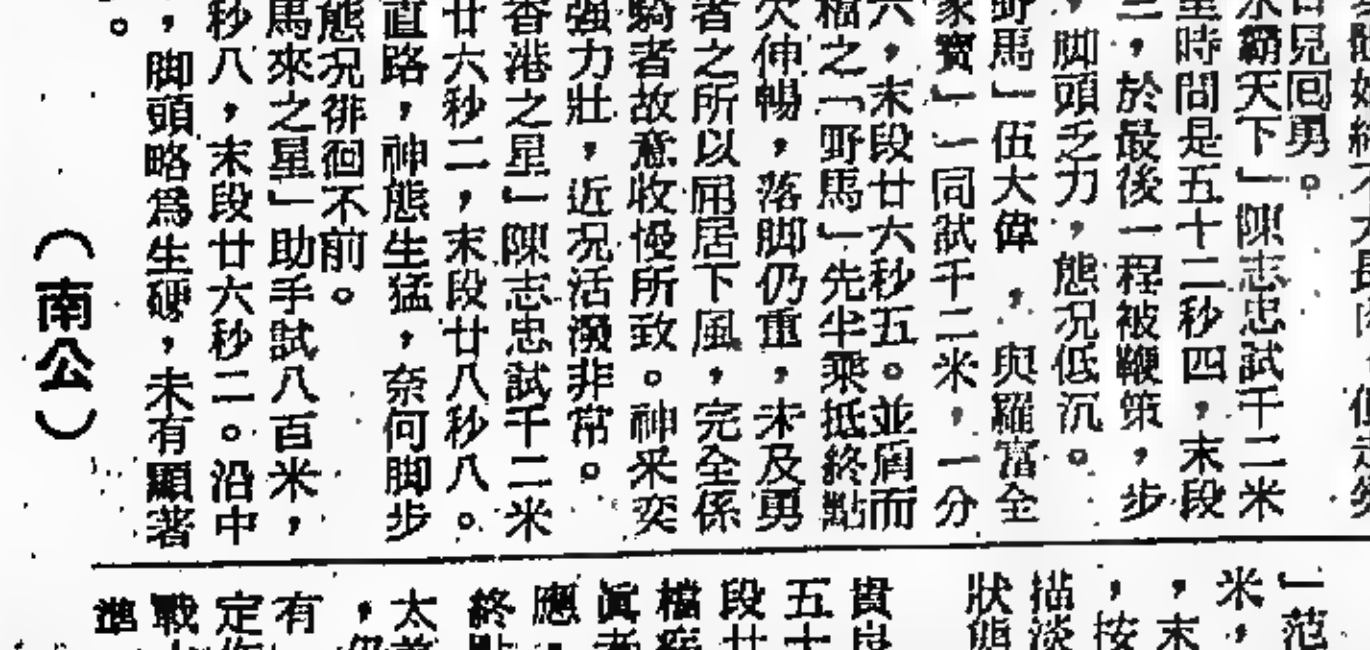 日見回勇。
水霸天下」陳志忠試千二米
里時間是五十二秒四，末段
三，於最後一程被鞭策，步
，脚頭乏力，態况低沉。
野馬」伍大偉，與羅富全
家寶」一同試千二米，一分
六，末段廿六秒五。並肩而
檔之「野馬」先半乘抵終點
欠伸暢，落脚仍重，未及勇
者之所以屈居下風，完全係
騎者故意收慢所致。神釆奕
強力壯，近况活潑非常。
香港之星」陳志忠試千二米
廿六秒二，末段廿八秒八。
直路，神態生猛，奈何脚步
態况徘徊不前。
馬來之星」助手試八百米，
秒八，末段廿六秒二。沿中
，脚頭略為生硬，未有顯著
。
（南公）
」范
米，
，末
，按
描淡
狀態
貴
五十
段廿
檔
眞者
應，
終點
太
，仍
有
定
戰
準